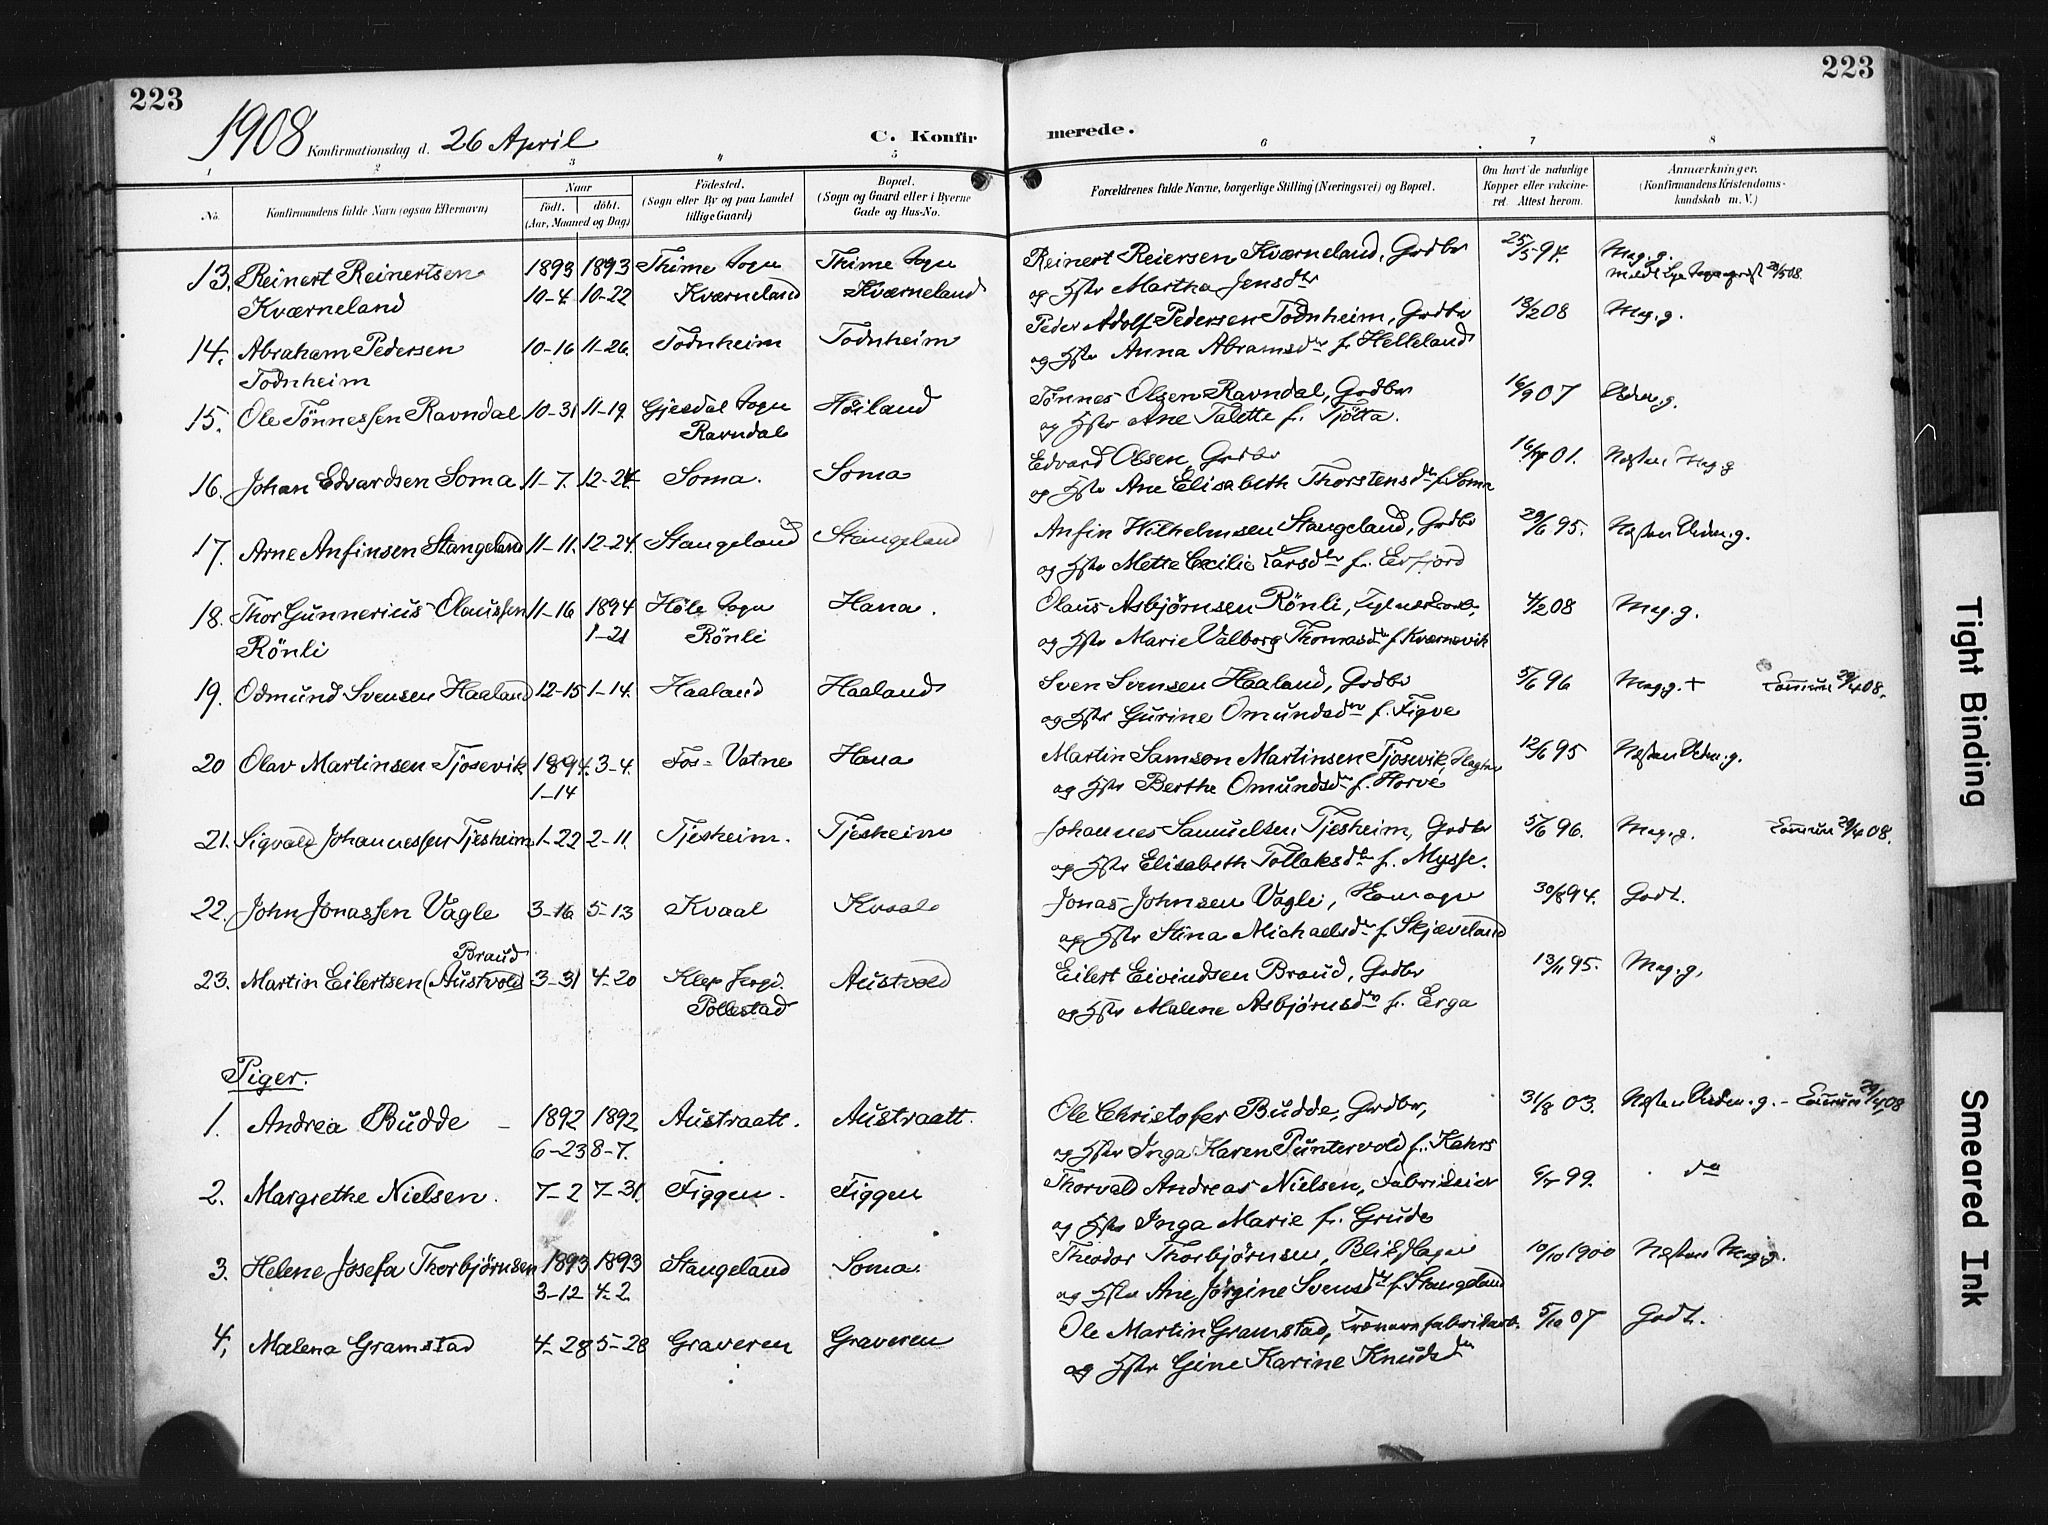 223
223
1908 Konfirmationsdag d. 26 April
C. Konfirmerede.
1 2 3 4 5 6 7 8
No.
Konfirmandens fulde Navn (ogsaa Efternavn)
Naar
født. døbt.
(Aar, Maaned og Dag)
Födested.
(Sogn eller By og paa Landet
tillige Gaard)
Bopæl.
(Sogn og Gaard eller i Byerne
Gade og Hus-No.
Forældrenes fulde Navne, borgerlige Stilling (Næringsvei) og Bopæl.
Om havt de naturlige
Kopper eller vakcine-
ret. Attest herom.
Anmærkninger.
(Konfirmandens Kristendoms-
kundskab m. V.)
13. Reinert Reinertsen 1893 1893 Thime Sogn Thime Sogn Reinert Reiersen Kværneland, Grdbr 25/5 94. Meg. g.
Kværneland 10-4 10-22 Kværneland Kværneland og Hstr Martha Jensdtr
14. Abraham Pedersen 10-16 11-26. Todnheim Todnheim Peder Adolf Pedersen Todnheim, Grdbr 18/2 08 Meg. g.
Todnheim og Hstr Anna Abramsdtr f. Helleland
15. Ole Tønnessen Ravndal 10-31 11-19. Gjesdal Sogn Høiland Tønnes Olsen Ravndal, Grdbr 16/9 07 Udm. g.
Ravndal og Hstr Ane Talette f. Tjøtta.
16. Johan Edvardsen Soma 11-7. 12-24. Soma. Soma Edvard Olsen, Grdbr 01. Næsten Meg. g
og Hstr Ane Elisabeth Thorstensdtr f. Soma
17. Arne Anfinsen Stangeland 11-11. 12-24. Stangeland Stangeland Anfin Wilhelmsen Stangeland, Grdbr 29/6 95. Næsten Udm. g.
og Hstr Mette Cecilie Larsdtr f. Erfjord
18. Thor Gunnerius Olaussen 11-16 1894 Høle Sogn Hana. Olaus Asbjørnsen Rönli, 4/2 08 Meg. g.
Rönli 1-21 Rönli og Hstr Marie Valborg Thomasdtr f. Kværnevik
19. Odmund Svensen Haaland 12-15 1-14. Haaland Haaland Sven Svensen Haaland, Grdbr 5/6 96 Meg. g. + 29/4 08.
og Hstr Gurine Omundsdtr f. Figve
20 Olav Martinsen Tjosevik 1894. 3-4. Fos-Vatne Hana Martin Samson Martinsen Tjosevik, 12/6 95 Næsten Udm. g.
1-14 og Hstr Berthe Omundsdtr f. Horve
21. Sigvald Johannessen Tjesheim 1-22 2-11. Tjesheim. Tjesheim Johannes Samuelsen Tjesheim, Grdbr 5/6 96. Meg. g. 29/4 08.
og Hstr Elisabeth Tollaksdtr f. Mysse.
22. John Jonassen Vagle 3-16 5-13 Kvaal Kvaal Jonas Johnsen Vagle, 30/8 94. Godt.
og Hstr Stina Michaelsdtr f. Skjæveland
Braud
23. Martin Eilertsen (Austvold) 3-31 4-20 Klep Austvold Eilert Eivindsen Braud, Grdbr 13/11 95. Meg. g.
Pollestad og Hstr Malene Asbjørnsdtr f. Erga
Piger.
1. Andrea Budde - 1892 1892 Austraatt. Austraatt. Ole Christofer Budde, Grdbr, 31/8 03. Næsten Udm. g. - 29/4 08
6-23 8-7. og Hstr Inga Karen Puntervold f. Kahrs
2. Margrethe Nielsen. 7-2 7-31. Figgen. Figgen Thorvald Andreas Nielsen, Fabrikeier 99. do
og Hstr Inga Marie f. Grude
3. Helene Josefa Thorbjørnsen 1893 1893 Stangeland Soma. Theodor Thorbjørnsen, Blikslager 10/10 1900 Næsten Meg. g.
3-12 4-2. og Hstr Ane Jørgine Svensdtr f. Stangeland
4, Malena Gramstad 4-28 5-28 Graveren Graveren Ole Martin Gramstad, 5/10 07 Godt.
og Hstr Gine Karine Knudsdtr
Tight Binding
Smeared Ink